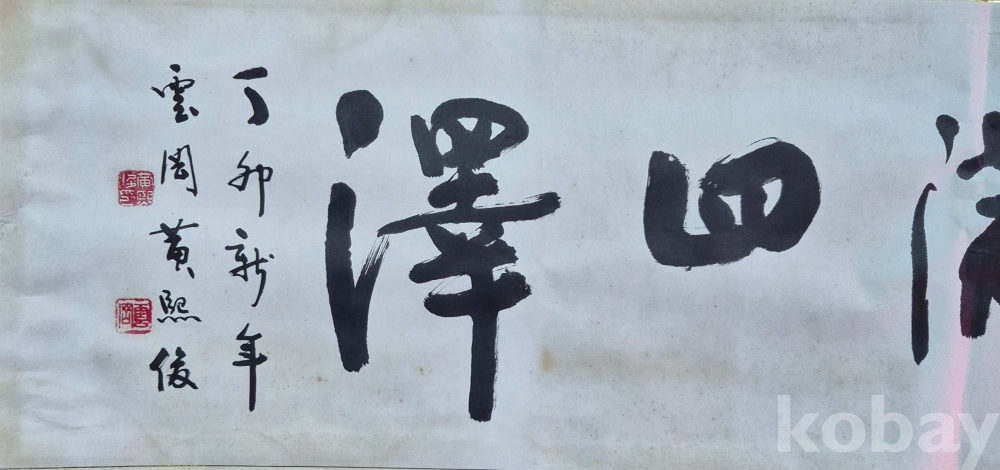 滿四澤
丁卯新年
雲岡黃熙俊
kobay